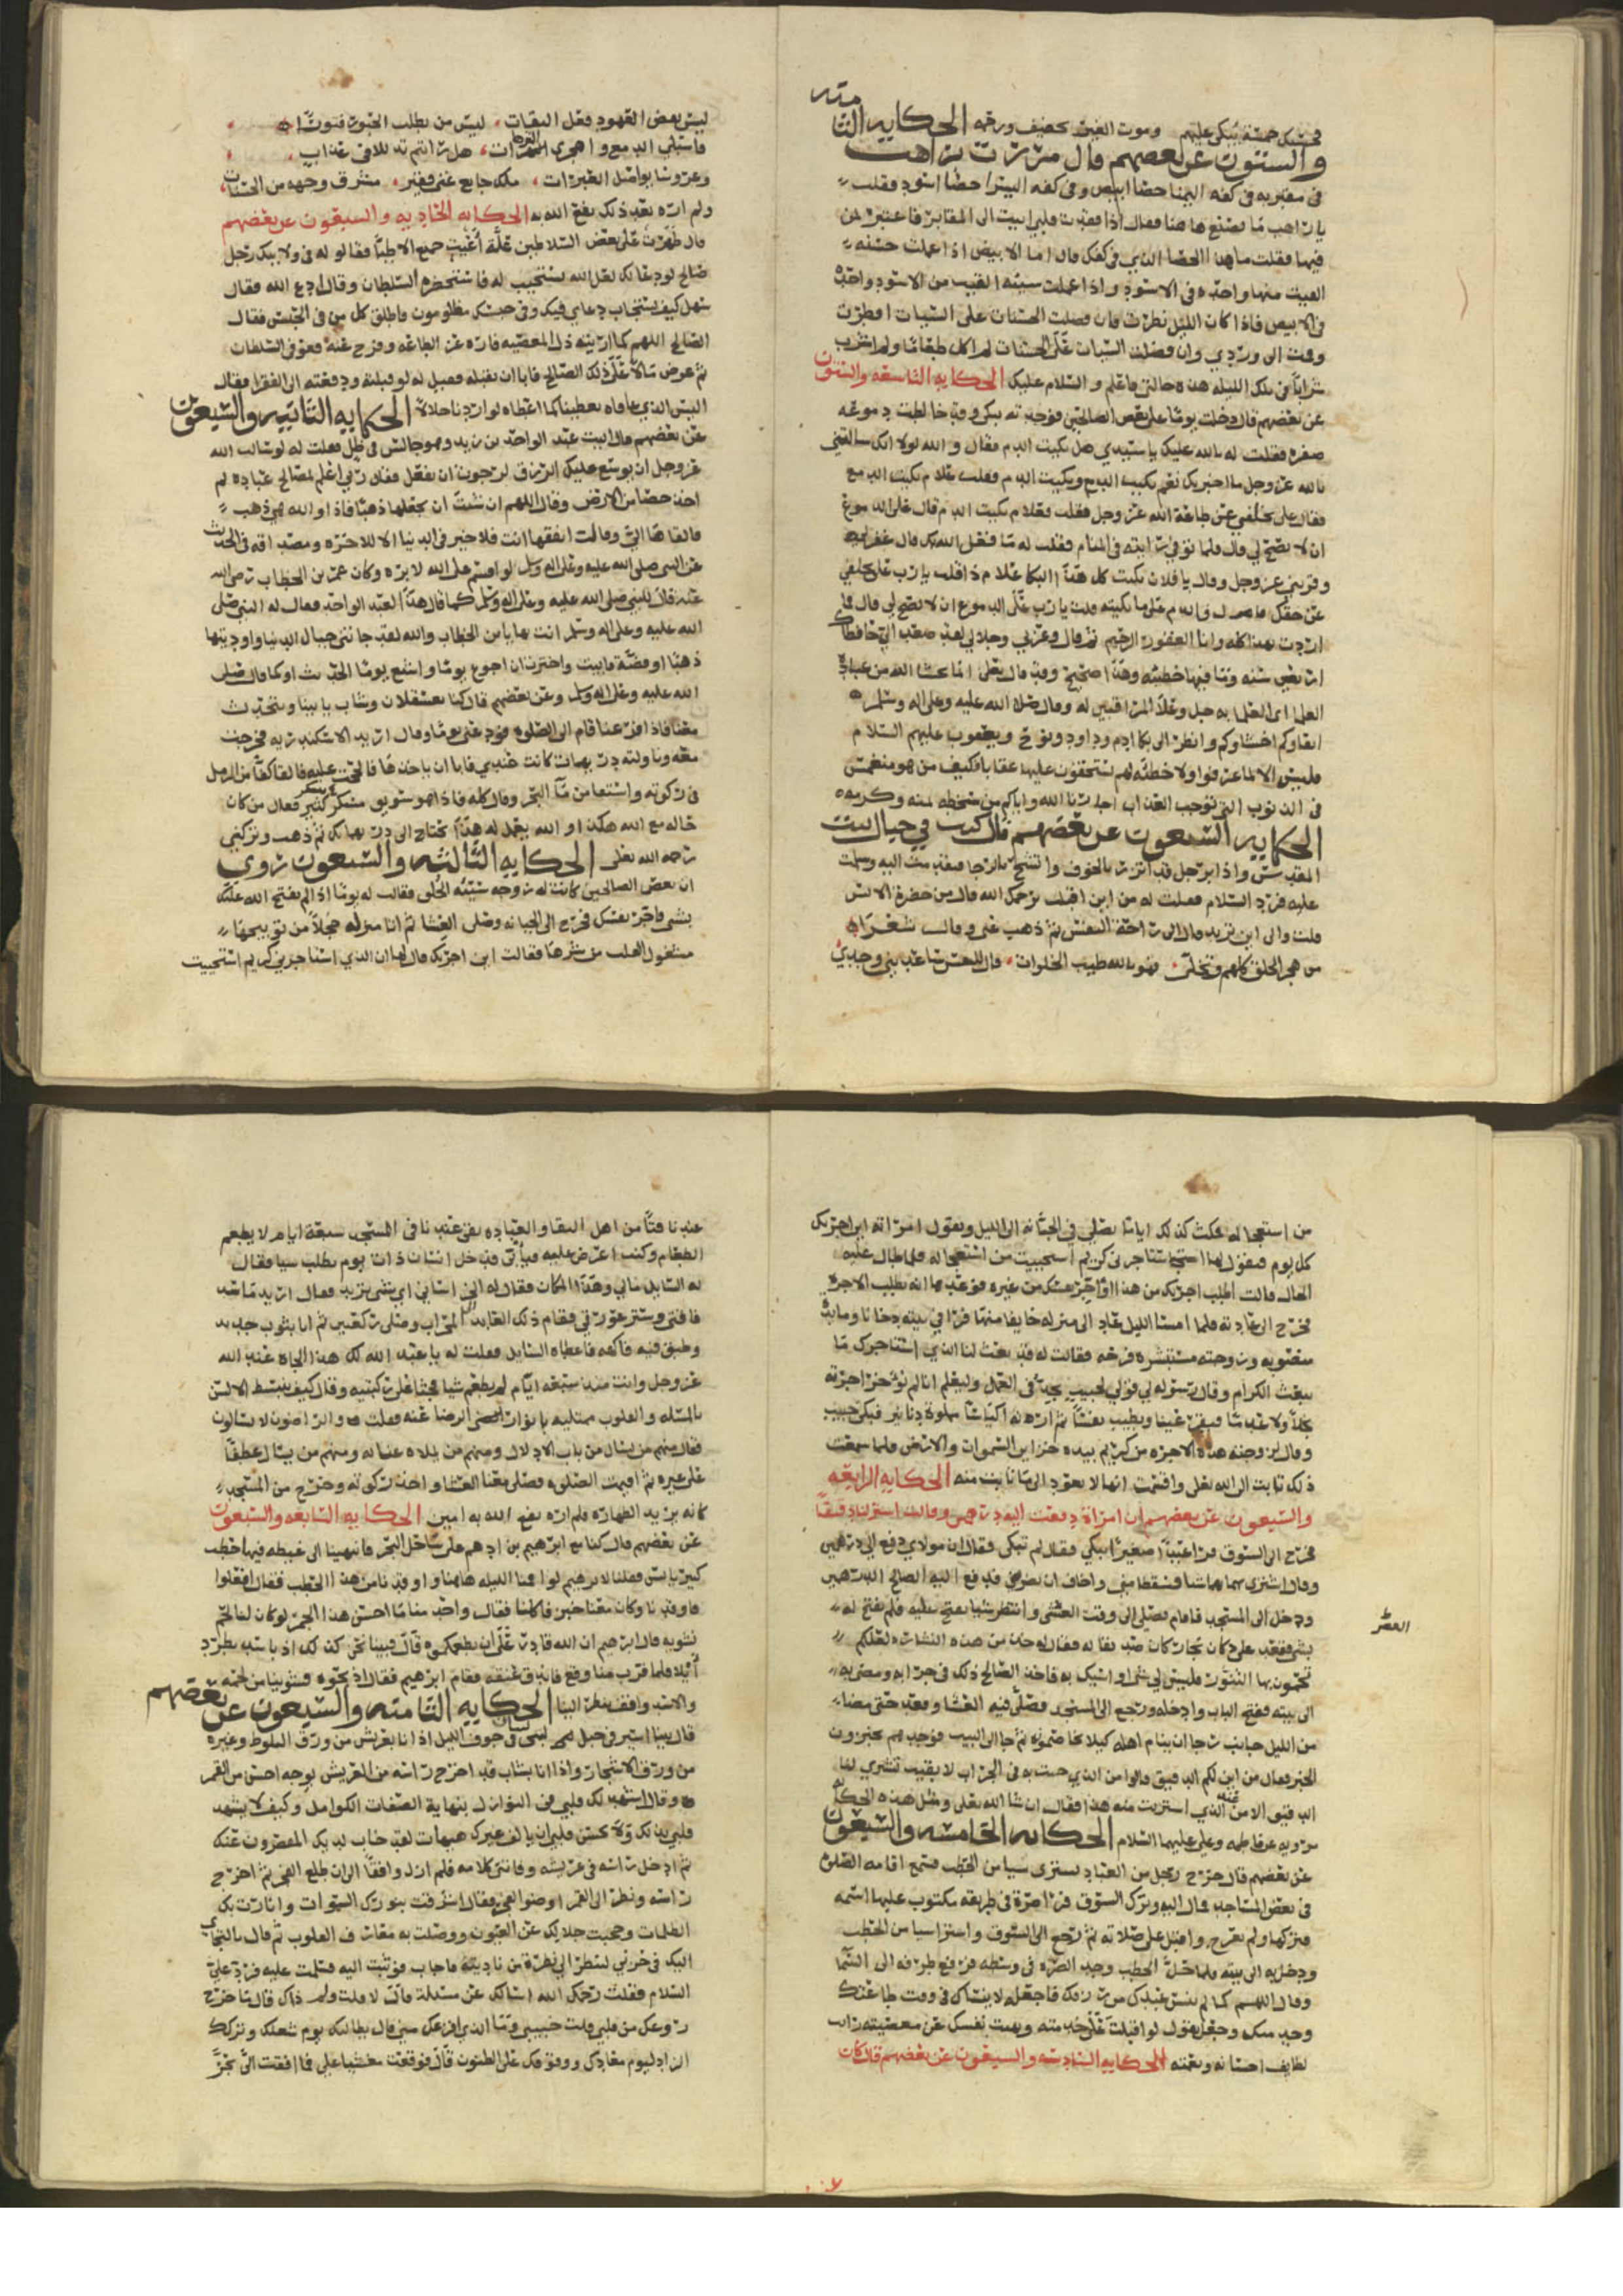 فخمسكل خمسة يُبكى عليهم وموت الغريب تخفيف ورحمه الحكايه الثامنه
والستون عن بعضهم قال مررت براهب
في مقبره في كفه اليمنا حصا ابيض وفي كفه اليسرا حصا اسود فقلت
يا راهب ما تصنع هاهنا فقال اذا فقدت قلبي اتيت الى المقابر فاعتبر بمن
فيها فقلت ما هذا الحصا الذي في كفك قال اما الابيض اذا عملت حسنه
القيت منها واحده في الاسود واذا عملت سيئه القيت من الاسود واحده
في الابيض فاذا كان الليل نظرت فان فضلت الحسنات على السيات افطرت
وقمت الى وردي وان فضلت السيات على الحسنات لم اكل طعاما ولم اشرب
شرابا في تلك الليله هذه حالتي فاعلم والسلام عليك الحكايه التاسعه والستون
عن بعضهم قال دخلت يوما على بعض الصالحين فوجدته يبكي وقد خالطت دموعه
صفره فقلت له بالله عليك يا سيدي هل بكيت الدم فقال والله لولا انك سالتني
بالله عز وجل ما اخبرتك نعم بكيت الدمع وبكيت الدم فقلت علام بكيت الدمع
فقال على تخلفي عن طاعة الله عز وجل فقلت فعلام بكيت الدم قال على الدموع
ان لا تصح لي قال فلما توفي رايته في المنام فقلت له ما فعل الله بك قال غفر لي
وقربني عز وجل وقال يا فلان بكيت كل هذا البكا علام ذا قلت يا رب على تخلفي
عن حقك قال والدم على ما بكيته قلت يا رب على الدموع ان لا تصح لي قال فما
اردت بهذا كله وانا الغفور الرحيم ثم قال وعزتي وجلالي لقد صعد الي حافظاك
اربعين سنه وما فيها خطيئه وهذا صحيح وقد قال تعلى انما يخشا الله من عباده
العلما اي العلما به جل وعلا المراقبين له وقال صلى الله عليه وعلى اله وسلم
اتقاوكم اخشاوكم وانظر الى بكا ادم وداود ونوح ويعقوب عليهم السلام
فليس الا لما عرفوا ولا خطيئه لهم يستحقون عليها عقابا فكيف من هو منغمس
في الذنوب التي توجب العذاب اجارنا الله واياكم من سخطه بمنه وكرمه
الحكايه السبعون عن بعضهم قال كنت في جبال بيت
المقدس واذا برجل قد اتزر بالخوف واتشح بالرجا فتقدمت اليه وسلمت
عليه فرد السلام فقلت له من اين اقبلت يرحمك الله قال من حضرة الانس
قلت والى اين تريد قال الى راحة النفس ثم ذهب عني وقال شعرا
من هجر الخلق كلهم وتخلى فهو بالله طيب الخلوات قال للنفس ساعديني وجدي
ليس بعض القهود فعل الثقات ليس من يطلب الخبوت فتوتا
فاستبلي الدمع واهجري الشهوات هل رايتم تد للافى عذاب
وعروسا يواصل العبرات ملك جايع غني وفقير مشرق وجهه من الحسنات
ولم اره بعد ذلك نفع الله به الحكايه الحاديه والسبعون عن بعضهم
قال ظهرت على بعض السلاطين علة أعيت جميع الاطبا فقالو له في ولايتك رجل
صالح لو دعا لك لعل الله يستجيب له فاستحضره السلطان وقال ادع الله فقال
سهل كيف يستجاب دعاي فيك وفي حبسك مظلومون فاطلق كل من في الحبس فقال
الصالح اللهم كما اريته ذل المعصيه فاره عز الطاعه وفرج عنه فعوفي السلطان
ثم عرض مالا على ذلك الصالح فابا ان يقبله فقيل له لو قبلته ودفعته الى الفقرا فقال
اليس الذي عافاه يعطينا كما اعطاه لو اردنا حلالا الحكايه الثانيه والسبعون
عن بعضهم قال اتيت عبد الواحد بن زيد وهو جالس في ظل فقلت له لو سالت الله
عز وجل ان يوسع عليك الرزق لرجوت ان يفعل فقال ربي اعلم بمصالح عباده ثم
اخذ حصا من الارض وقال اللهم ان شئت ان تجعلها ذهبا فاذا والله هي ذهب
فالقاها الي وقالت انفقها انت فلا خير في الدنيا الا للاخره ومصداقه في الحديث
عن النبي صلى الله عليه وعلى اله وسلم لو اقسم على الله لابره وكان عمر بن الخطاب رضي الله
عنه قال للنبي صلى الله عليه وعلى اله وسلم كما قال هذا العبد الواحد فقال له النبي صلى
الله عليه وعلى اله وسلم انت بها يا بن الخطاب والله لقد جانتني جبال الدنيا واوديتها
ذهبا او فضة فابيت واخترت ان اجوع يوما واشبع يوما الحديث او كما قال صلى
الله عليه وعلى اله وسلم وعن بعضهم قال كنا بعسقلان وشاب ياتينا ويتحدث
معنا فاذا فرغنا قام الى الصلوه فودعني يوما وقال اريد الاسكندريه فخرجت
معه وناولته دريهمات كانت عندي فابا ان ياخذها فالحيت عليه فالقا كفا من الرمل
في ركوته واستقا من ما البحر وقال كله فاذا هو سويق بسكر كثير فقال من كان
حاله مع الله هكذا والله يعمل له هذا يحتاج الى دريهماتك ثم ذهب وتركني
رحمه الله تعلى الحكايه الثالثه والسبعون روي
ان بعض الصالحين كانت له زوجه سيئه الخلق فقالت له يوما اذا لم يفتح الله عليك
بشي فاجر نفسك فخرج الى الجبانه وصلى العشا ثم اتا منزله خجلا من توبيخها
مشغول القلب من شرها فقالت اين اجرتك قال لها ان الذي استاجرني كريم استحييت
من استعجاله فمكث كذلك اياما يصلي في الجبانه الى الليل وتقول امراته اين اجرتك
كل يوم فيقول لها استاجرني كريم استحييت من استعجاله فلما طال عليه
الحال قالت اطلب اجرتك من هذا او اجر نفسك من غيره فوعدها انه يطلب الاجره
فخرج الى عادته فلما امسا الليل عاد الى منزله خايفا منها فرا في بيته دخانا ومايدة
منصوبه وزوجته مستبشره فرحه فقالت له قد بعث لنا الذي استاجرك ما
يبعث الكرام وقال رسوله لي قولي لحبيب يجد في العمل وليعلم انا لم نوخر اجرته
بخلا ولا عدما فيقر عينا ويطيب نفسا ثم ارته اكياسا مملوة دنانير فبكى حبيب
وقال لزوجته هذه الاجره من كريم بيده خزاين السموات والارض فلما سمعت
ذلك تابت الى الله تعلى واقسمت انها لا تعود الى ما تابت منه الحكايه الرابعه
والسبعون عن بعضهم ان امراة دفعت اليه درهمين وقالت اشتر لنا دقيقا
فخرج الى السوق فرا عبدا صغيرا يبكي فقال لم تبكي فقال ان مولاي دفع الي درهمين
وقال اشتري بهما شيا فسقطا مني واخاف ان يضربني فدفع اليه الصالح الدرهمين
ودخل الى المسجد فاقام يصلي الى وقت العشي وانتظر شيا يفتح عليه فلم يفتح له
بشي فقعد على دكان نجار كان صديقا له فقال له خذ من هذه النشاره لعلكم
تحمون بها التنور فليس لي شي اواسيك به فاخذ الصالح ذلك في جرابه ومضى به
الى بيته ففتح الباب وادخله ورجع الى المسجد فصلى فيه العشا وقعد حتى مضا
من الليل جانب رجا ان ينام اهله كيلا يخاصموه ثم جا الى البيت فوجدهم يخبزون
الخبز فقال من اين لكم الدقيق قالوا من الذي جيت به في الجراب لا بقيت تشتري لنا
الدقيق الا من عند الذي اشتريت منه هذا فقال ان شا الله تعلى ومثل هذه الحكايه
مرويه عن فاطمه وعلي عليهما السلام الحكايه الخامسه والسبعون
عن بعضهم قال خرج رجل من العباد يشتري شيا من الحطب فسمع اقامه الصلوه
في بعض المساجد فمال اليه وترك السوق فرا صرة في طريقه مكتوب عليها اسمه
فتركها ولم يعرج واقبل على صلاته ثم رجع الى السوق واشترا شيا من الحطب
ودخل به الى بيته فلما حل الحطب وجد الصره في وسطه فرفع طرفه الى السما
وقال اللهم كما لم تنس عبدك من رزقك فاجعله لا ينساك في وقت طاعتك
وجعل يقول لو اقبلت على خدمته ونهيت نفسك عن معصيته رايت
لطايف احسانه ونعمته الحكايه السادسه والسبعون عن بعضهم قال كان
العصر
عندنا فتا من اهل التقا والعباده بقي عندنا في المسجد سبعة ايام لا يطعم
الطعام وكنت اعرض عليه فيأبى فدخل انسان ذات يوم يطلب شيا فقال
له السايل ... وهذا المكان فقال له ... اي شي تريد فقال اريد ما اسد
فاقتي وستر عورتي فقام ذلك العابد الى المحراب وصلى ركعتين ثم اتا بثوب جديد
وطبق فيه فاكهه فاعطاه السايل فقلت له يا عبد الله لك هذا الجاه عند الله
عز وجل وانت منذ سبعه ايام لم تطعم شيا فجثا على ركبتيه وقال كيف ينبسط الالسن
بالمسئله والقلوب ممتليه بانوار الرضا عنه فقلت والراضون لا يسالون
فقال منهم من يسال من باب الادلال ومنهم من يلاه عنا به ومنهم من يسال عطفا
على غيره ثم اقيمت الصلوه فصلى معنا العشا واخذ ركوته وخرج من المسجد
كانه يريد الطهاره فلم اره نفع الله به امين الحكايه السابعه والسبعون
عن بعضهم قال كنا مع ابرهيم بن ادهم على ساحل البحر فانتهينا الى غيضه فيها حطب
كثير يابس فقلنا لابرهيم لو اقمنا الليله هاهنا واوقدنا من هذا الحطب فقال افعلوا
فاوقدنا وكان معنا خبز فاكلنا فقال واحد منا ما احسن هذا الجمر لو كان لنا لحم
نشويه قال ابرهيم ان الله قادر على ان يطعمكموه قال فبينا نحن كذلك اذ باسد يطرد
أيلا فلما قرب منا وقع فاندق عنقه فقام ابرهيم فقال اذبحوه فشوينا من لحمه
والاسد واقف ينظر الينا الحكايه الثامنه والسبعون عن بعضهم
قال بينا اسير في جبل ... في جوف الليل اذ انا بعريش من ورق البلوط وغيره
من ورق الاشجار واذا انا بشاب قد اخرج راسه من العريش بوجه احسن من القمر
وقال اشهد لك قلبي في النوازل بنهاية الصفات الكوامل وكيف لا يشهد
قلبي بذلك ولا يحسن قلبي ان يالف غيرك هيهات لقد خاب لديك المقصرون عنك
ثم ادخل راسه في عريشه وفاتني كلامه فلم ازل واقفا الى ان طلع الفجر ثم اخرج
راسه ونظر الى القمر او ضوء الفجر فقال اشرقت بنورك السموات وانارت بك
الظلمات وحجبت جلالك عن العيون ووصلت به معارف القلوب ثم قال بالتجاي
اليك في حزني لتنظر الي نظرة من ناديته فاجاب فوثبت اليه فسلمت عليه فرد علي
السلام فقلت رحمك الله اسالك عن مسئلة قال لا قلت ولم ذاك قال ما خرج
روعك من قلبي قلت حبيبي وما الذي افزعك مني قال بطالتك يوم شغلك وتركك
الزاد ليوم معادك ووقوفك على الظنون قال فوقعت مغشيا علي فما افقت الا بحر